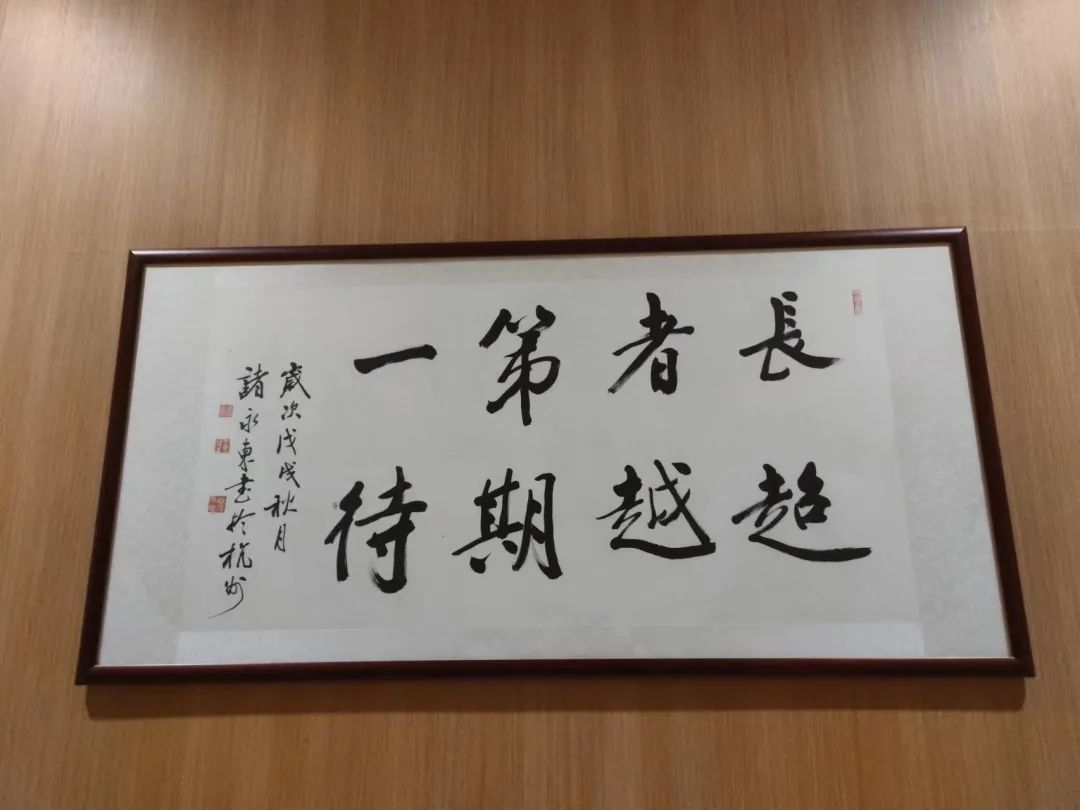 長者第一
超越期待
歲次戊戌秋月
諸永東書於杭州